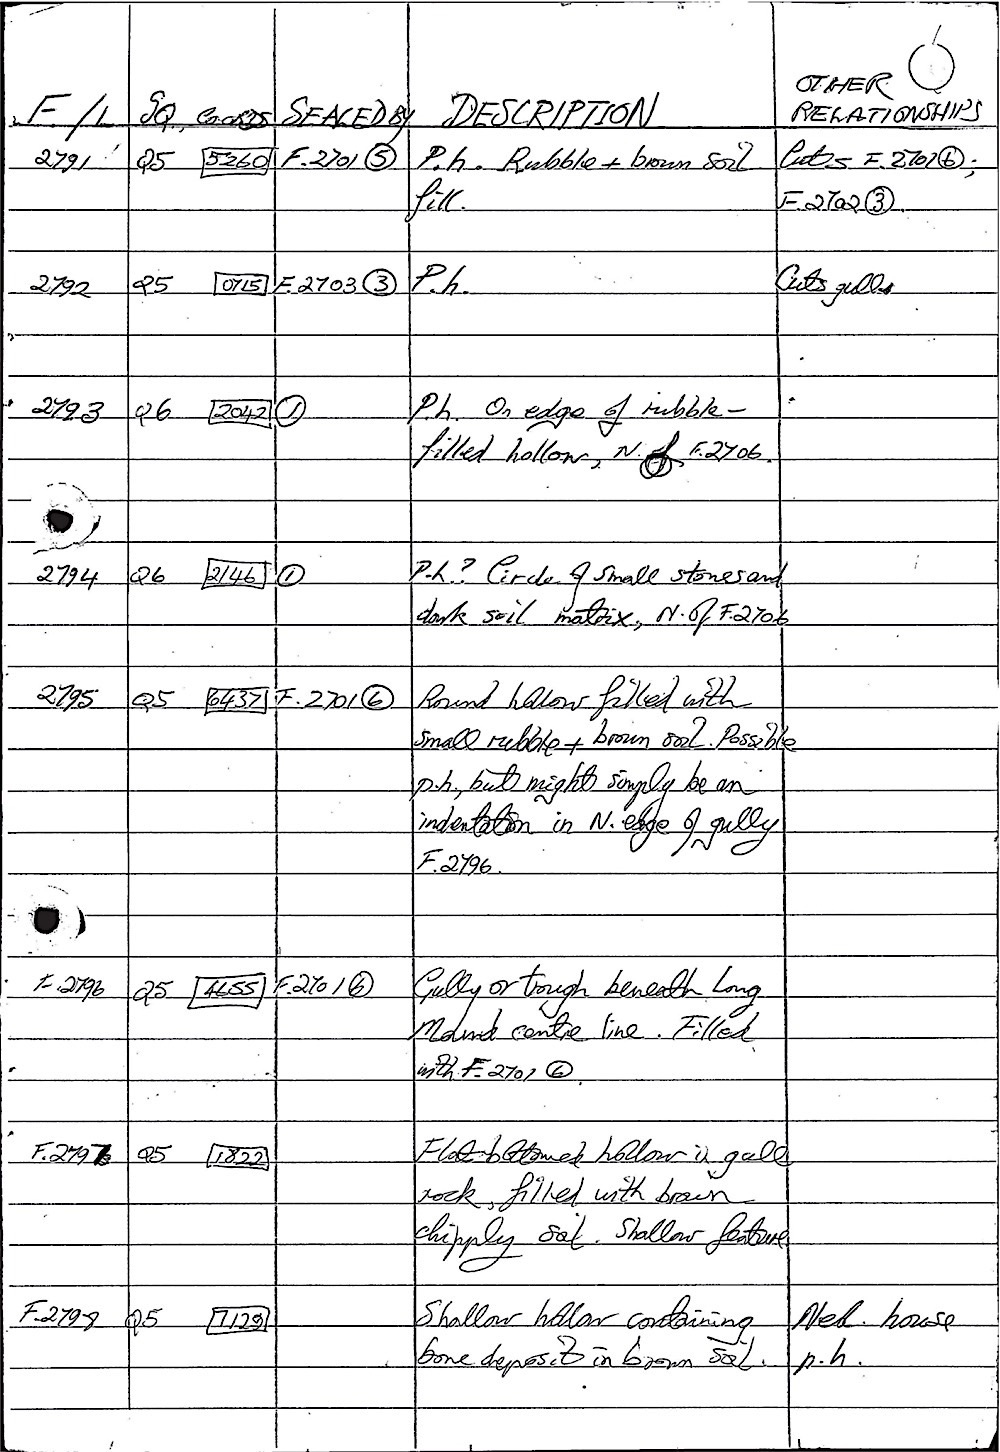 OTHER
F./L SQ. Coords SEALED BY DESCRIPTION RELATIONSHIPS
2791 Q5 5260 F.2701 ⑤ P.h. Rubble + brown soil Cuts F.2701⑥;
fill. F.2702③.
2792 Q5 0715 F.2703 ③ P.h. Cuts gully
2793 Q6 2042 ① P.h. On edge of rubble-
filled hollow, N. of F.2706.
2794 Q6 2146 ① P.h? Circle of small stones and
dark soil matrix, N. of F.2706
2795 Q5 6437 F.2701⑥ Round hollow filled with
small rubble + brown soil. Possible
p.h., but might simply be an
indentation in N. edge of gully
F.2796.
F.2796 Q5 4655 F.2701⑥ Gully or trough beneath Long
Mound centre line. Filled
with F.2701 ⑥
F.2797 Q5 1822 Flat-bottomed hollow in
rock, filled with brown
chipply soil. Shallow feature
F.2798 Q5 7129 Shallow hollow containing Ned. house
bone deposit in brown soil. p.h.